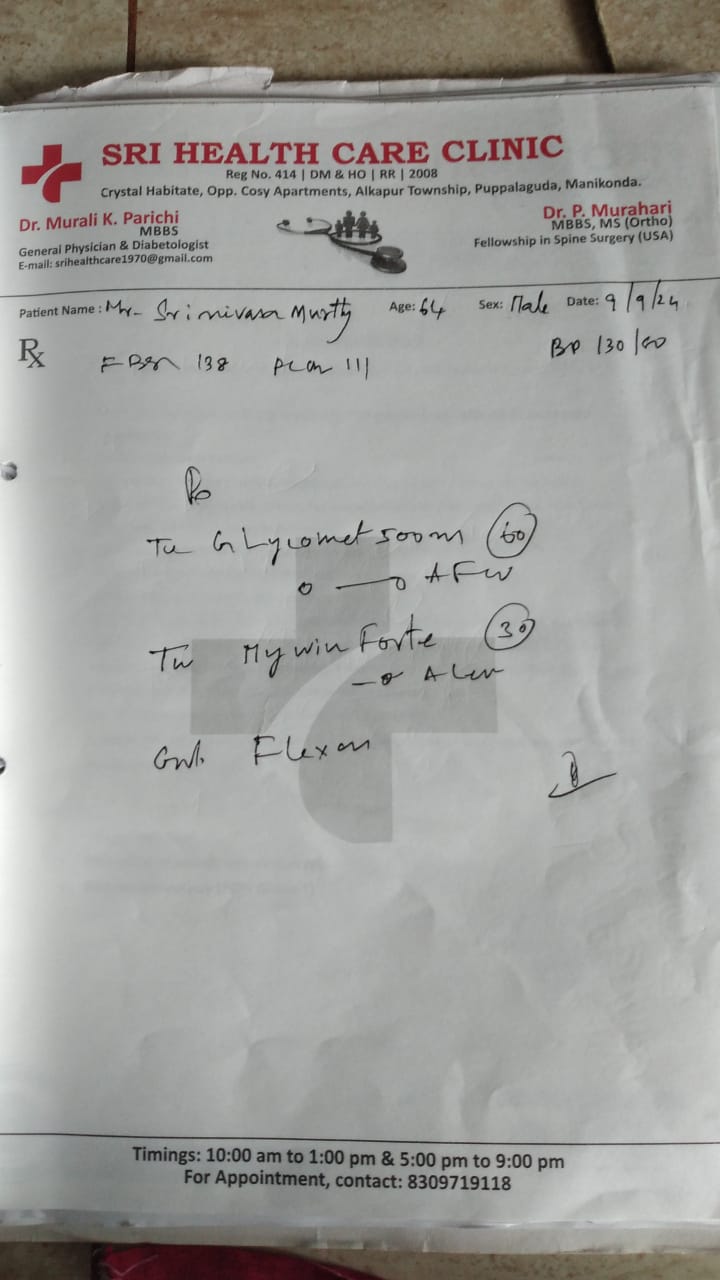 SRI HEALTH CARE CLINIC
Reg No. 414 | DM & HO | RR | 2008
Crystal Habitate, Opp. Cosy Apartments, Alkapur Township, Puppalaguda, Manikonda.
Dr. Murali K. Parichi
MBBS
General Physician & Diabetologist
E-mail: srihealthcare1970@gmail.com
Dr. P. Murahari
MBBS, MS (Ortho)
Fellowship in Spine Surgery (USA)
Patient Name : Mr- Srinivasa Murthy Age: 64 Sex: Male Date: 9/9/24
Rx 138 111 BP 130/
Glycomet 500 60
30
Forte
Timings: 10:00 am to 1:00 pm & 5:00 pm to 9:00 pm
For Appointment, contact: 8309719118